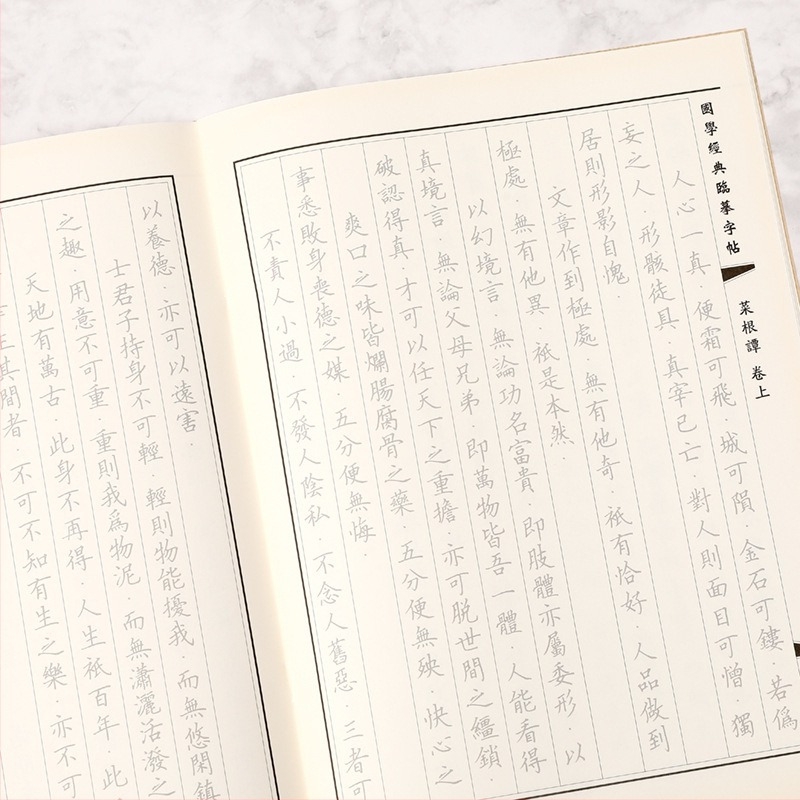 國學經典臨摹字帖
菜根譚 卷上
人心一真．便霜可飛．城可隕．金石可鏤．若僞
妄之人．形骸徒具．真宰已亡．對人則面目可憎．獨
居則形影自愧．
文章作到極處 無有他奇．祗有恰好．人品做到
極處．無有他異．祗是本然．
以幻境言．無論功名富貴．即肢體亦屬委形．以
真境言．無論父母兄弟．即萬物皆吾一體．人能看得
破認得真．才可以任天下之重擔．亦可脫世間之繮鎖．
爽口之味皆爛腸腐骨之藥．五分便無殃．快心之
事悉敗身喪德之媒．五分便無悔．
不責人小過．不發人陰私．不念人舊惡．三者可
以養德．亦可以遠害．
士君子持身不可輕．輕則物能擾我．而無悠閑鎮
之趣．用意不可重．重則我爲物泥．而無瀟灑活潑之
天地有萬古．此身不再得．人生祗百年．此
生其間者．不可不知有生之樂．亦不可